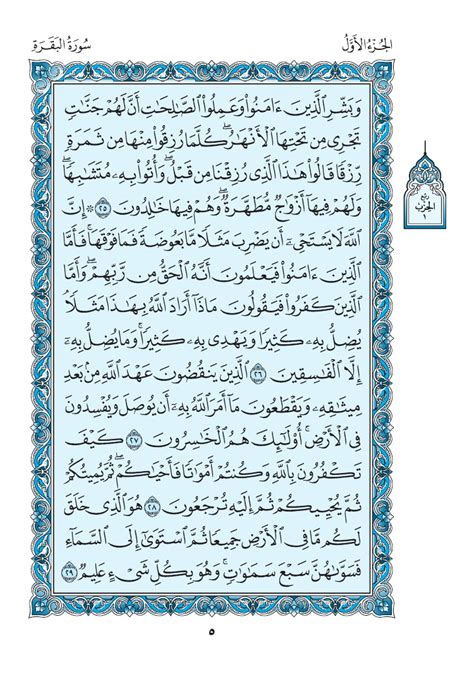 الجُزْءُ الأَوَّلُ
سُورَةُ البَقَرَةِ
وَبَشِّرِ ٱلَّذِينَ ءَامَنُوا۟ وَعَمِلُوا۟ ٱلصَّٰلِحَٰتِ أَنَّ لَهُمْ جَنَّٰتٍ
تَجْرِى مِن تَحْتِهَا ٱلْأَنْهَٰرُ ۖ كُلَّمَا رُزِقُوا۟ مِنْهَا مِن ثَمَرَةٍ
رِّزْقًا ۙ قَالُوا۟ هَٰذَا ٱلَّذِى رُزِقْنَا مِن قَبْلُ ۖ وَأُتُوا۟ بِهِۦ مُتَشَٰبِهًا ۖ
وَلَهُمْ فِيهَآ أَزْوَٰجٌ مُّطَهَّرَةٌ ۖ وَهُمْ فِيهَا خَٰلِدُونَ ٢٥ ۞ إِنَّ
ٱللَّهَ لَا يَسْتَحْىِۦٓ أَن يَضْرِبَ مَثَلًا مَّا بَعُوضَةً فَمَا فَوْقَهَا ۚ فَأَمَّا
ٱلَّذِينَ ءَامَنُوا۟ فَيَعْلَمُونَ أَنَّهُ ٱلْحَقُّ مِن رَّبِّهِمْ ۖ وَأَمَّا
ٱلَّذِينَ كَفَرُوا۟ فَيَقُولُونَ مَاذَآ أَرَادَ ٱللَّهُ بِهَٰذَا مَثَلًا ۘ
يُضِلُّ بِهِۦ كَثِيرًا وَيَهْدِى بِهِۦ كَثِيرًا ۚ وَمَا يُضِلُّ بِهِۦٓ
إِلَّا ٱلْفَٰسِقِينَ ٢٦ ٱلَّذِينَ يَنقُضُونَ عَهْدَ ٱللَّهِ مِنۢ بَعْدِ
مِيثَٰقِهِۦ وَيَقْطَعُونَ مَآ أَمَرَ ٱللَّهُ بِهِۦٓ أَن يُوصَلَ وَيُفْسِدُونَ
فِى ٱلْأَرْضِ ۚ أُو۟لَٰٓئِكَ هُمُ ٱلْخَٰسِرُونَ ٢٧ كَيْفَ
تَكْفُرُونَ بِٱللَّهِ وَكُنتُمْ أَمْوَٰتًا فَأَحْيَٰكُمْ ۖ ثُمَّ يُمِيتُكُمْ
ثُمَّ يُحْيِيكُمْ ثُمَّ إِلَيْهِ تُرْجَعُونَ ٢٨ هُوَ ٱلَّذِى خَلَقَ
لَكُم مَّا فِى ٱلْأَرْضِ جَمِيعًا ثُمَّ ٱسْتَوَىٰٓ إِلَى ٱلسَّمَآءِ
فَسَوَّىٰهُنَّ سَبْعَ سَمَٰوَٰتٍ ۚ وَهُوَ بِكُلِّ شَىْءٍ عَلِيمٌ ٢٩
ربع
الحزب
١
٥